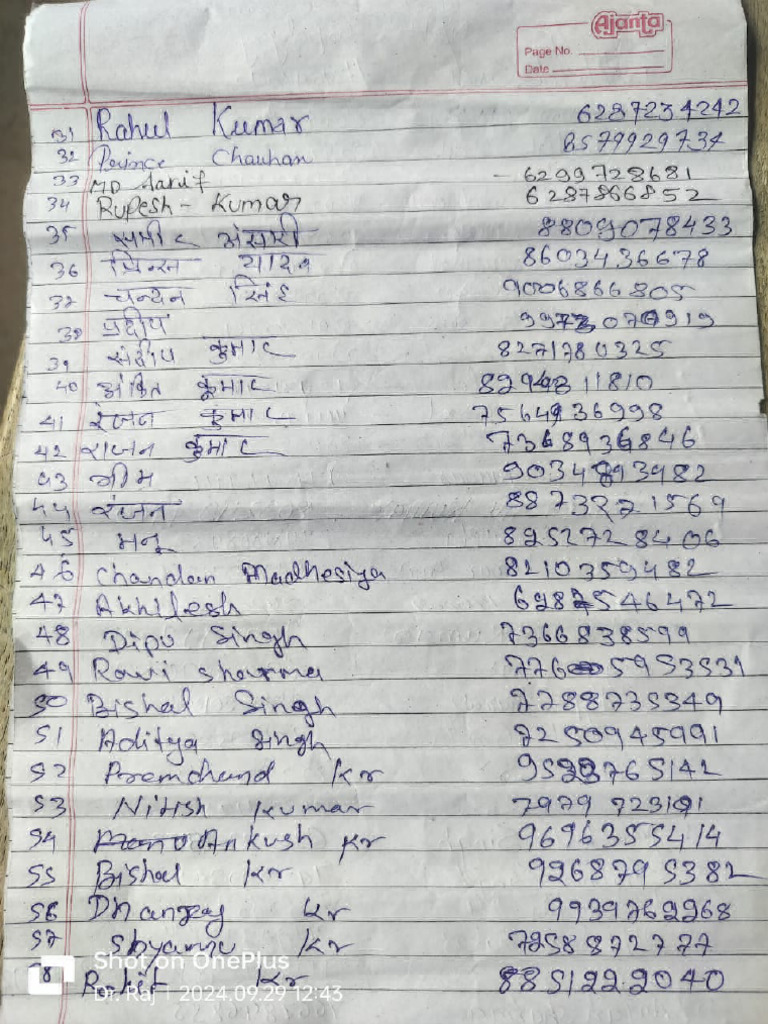 Ajanta
Page No.
Date
31 Rahul Kumar 6287234242
32 Prince Chauhan 8579929734
33 MD Aarif - 6299728681
34 Rupesh - Kumar 6287866852
35 अंसारी 8809078433
36 प्रिन्स यादव 8603436678
37 चन्दन सिंह 9006866805
38 प्रदीप
39 संदीप कुमार 8271780325
40 अंकित कुमार
41 रंजन कुमार
42 राजन कुमार
43 भीम
44 रंजन
45 मनू 8252728406
46 Chandan Madhesiya 8210359482
47 Akhilesh
48 Dipu Singh 7366838599
49 Ravi Sharma
50 Bishal Singh 7788735349
51 Aditya Singh 7250945991
52 Premchand Kr
53 Nitish Kumar
54 Ankush Kr 9696355414
55 Bishal Kr 9268795382
56 Dhanzay Kr 9939762268
57 Shyamu Kr 7258872777
58 Rohit Kr 8851222040
Shot on OnePlus
Dr. Raj | 2024.09.29 12:43